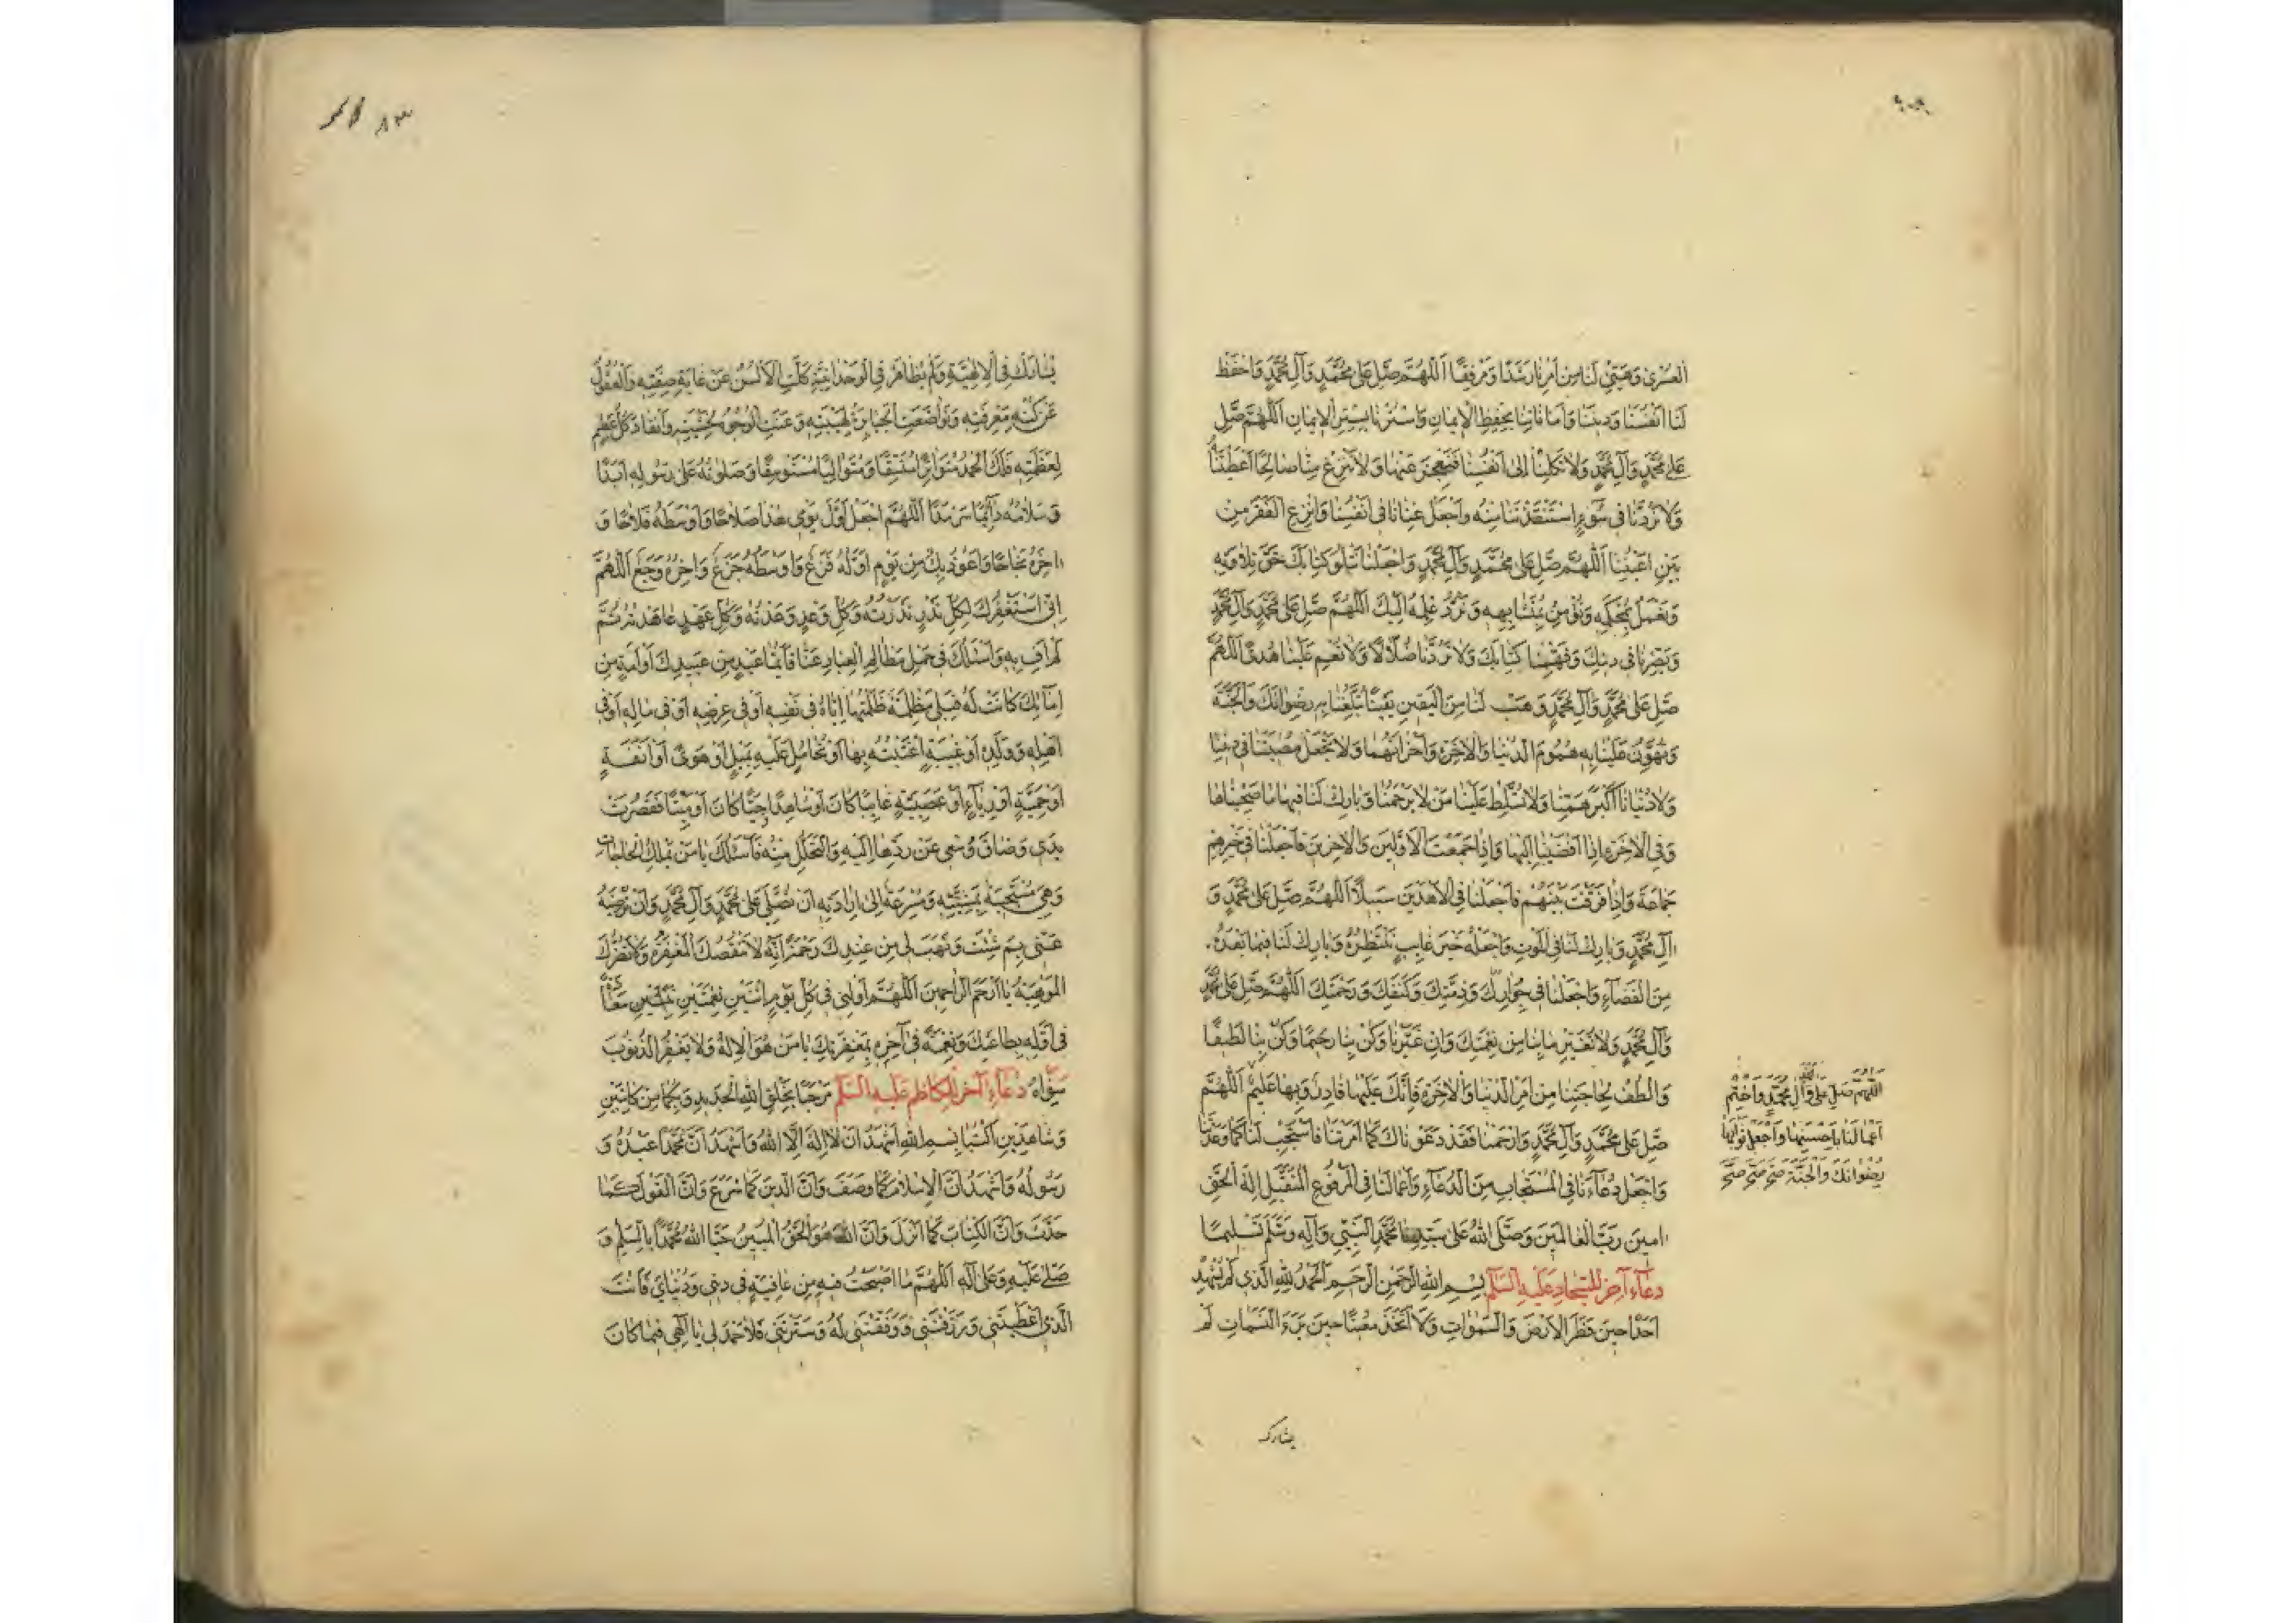 العسرى وهيئ لنا من امرنا رشدا ومرفقا اللهم صل على محمد وآل محمد واحفظ
لنا انفسنا وديننا واماناتنا بحفظ الايمان واسترنا بستر الايمان اللهم صل
على محمد وآل محمد ولا تكلنا الى انفسنا فنعجز عنها ولا تنزع منا صالحا اعطيتناه
ولا تردنا في سوء استنقذتنا منه واجعل غنانا في انفسنا وانزع الفقر من
بين اعيننا اللهم صل على محمد وآل محمد واجعلنا نتلو كتابك حق تلاوته
ونعمل بمحكمه ونؤمن بمتشابهه ونرد علمه اليك اللهم صل على محمد وآل محمد
وبصرنا في دينك وفهمنا كتابك ولا تردنا ضلالا ولا تعم علينا هدى اللهم
صل على محمد وآل محمد وهب لنا من اليقين يقينا تبلغنا به رضوانك والجنة
وتهون علينا به هموم الدنيا والآخرة واحزانهما ولا تجعل مصيبتنا في ديننا
ولا دنيانا اكبر همنا ولا تسلط علينا من لا يرحمنا وبارك لنا فيها ما صحبناها
وفي الآخرة اذا افضينا اليها واذا جمعت الاولين والآخرين فاجعلنا في خيرهم
جماعة واذا فرقت بينهم فاجعلنا في الاهدين سبيلا اللهم صل على محمد و
آل محمد وبارك لنا في الموت واجعله خير غايب ننتظره وبارك لنا فيما بعده
من القضاء واجعلنا في جوارك وذمتك وكنفك ورحمتك اللهم صل على محمد
وآل محمد ولا تغير ما بنا من نعمتك وان غيرنا وكن بنا رحيما وكن بنا لطيفا
والطف لحاجتنا من امر الدنيا والآخرة فانك عليها قادر وبها عليم اللهم
صل على محمد وآل محمد وارحمنا فقد دعوناك كما امرتنا فاستجب لنا كما وعدتنا
واجعل دعاءنا في المستجاب من الدعاء واعمالنا في المرفوع المتقبل اله الحق
امين رب العالمين وصلى الله على سيدنا محمد النبي وآله وسلم تسليما
دعاء آخر للسجاد عليه السلم بسم الله الرحمن الرحيم الحمد لله الذي لم يشهد
احدا حين فطر الارض والسموات ولا اتخذ معينا حين برء النسمات لم
اللهم صل على محمد وآل محمد واختم
اعمالنا باحسنها واجعل ثوابها
رضوانك والجنة صح صح صح
يشارك
٨٣
يشارك في الالهية ولم يظاهر في الوحدانية كلت الالسن عن غاية صفته والعقول
عن كنه معرفته وتواضعت الجبابرة لهيبته وعنت الوجوه لخشيته وانقاد كل عظيم
لعظمته فلك الحمد متواترا متسقا ومتواليا مستوسقا وصلوته على رسوله ابدا
وسلامه دائما سرمدا اللهم اجعل اول يومي هذا صلاحا واوسطه فلاحا و
آخره نجاحا واعوذ بك من يوم اوله فزع واوسطه جزع وآخره وجع اللهم
اني استغفرك لكل نذر نذرته وكل وعد وعدته وكل عهد عاهدته ثم
لم اف به واسئلك في حمل مظالم العباد عنا فايما عبد من عبيدك او امة من
امائك كانت له قبلي مظلمة ظلمتها اياه في نفسه او في عرضه او في ماله او في
اهله وولده او غيبة اغتبته بها او تحامل عليه بميل او هوى او انفة
او حمية او رياء او عصبية غايبا كان او شاهدا حيا كان او ميتا فقصرت
يدي وضاق وسعي عن ردها اليه والتحلل منه فاسئلك يا من يملك الحاجات
وهي مستجيبة بمشيته ومسرعة الى ارادته ان تصلي على محمد وآل محمد وان ترضيه
عني بم شئت وتهب لي من عندك رحمة انه لا تنقصك المغفرة ولا تضرك
الموهبة يا ارحم الراحمين اللهم اولني في كل يوم اثنين نعمتين ثنتين سعادة
في اوله بطاعتك ونعمة في آخره بمغفرتك يا من هو الاله ولا يغفر الذنوب
سواه دعاء آخر للكاظم عليه السلم مرحبا بخلق الله الجديد وبكما من كاتبين
وشاهدين اكتبا بسم الله اشهد ان لا اله الا الله واشهد ان محمدا عبده و
رسوله واشهد ان الاسلام كما وصف وان الدين كما شرع وان القول كما
حدث وان الكتاب كما انزل وان الله هو الحق المبين حيا الله محمدا بالسلم و
صلى عليه وعلى آله اللهم ما اصبحت فيه من عافية في ديني ودنياي فانت
الذي اعطيتني ورزقتني ووفقتني له وسترتني فلا حمد لي يا الهي فيما كان